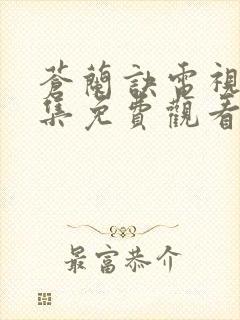 蒼蘭訣電視
集免費觀看
最富恭介